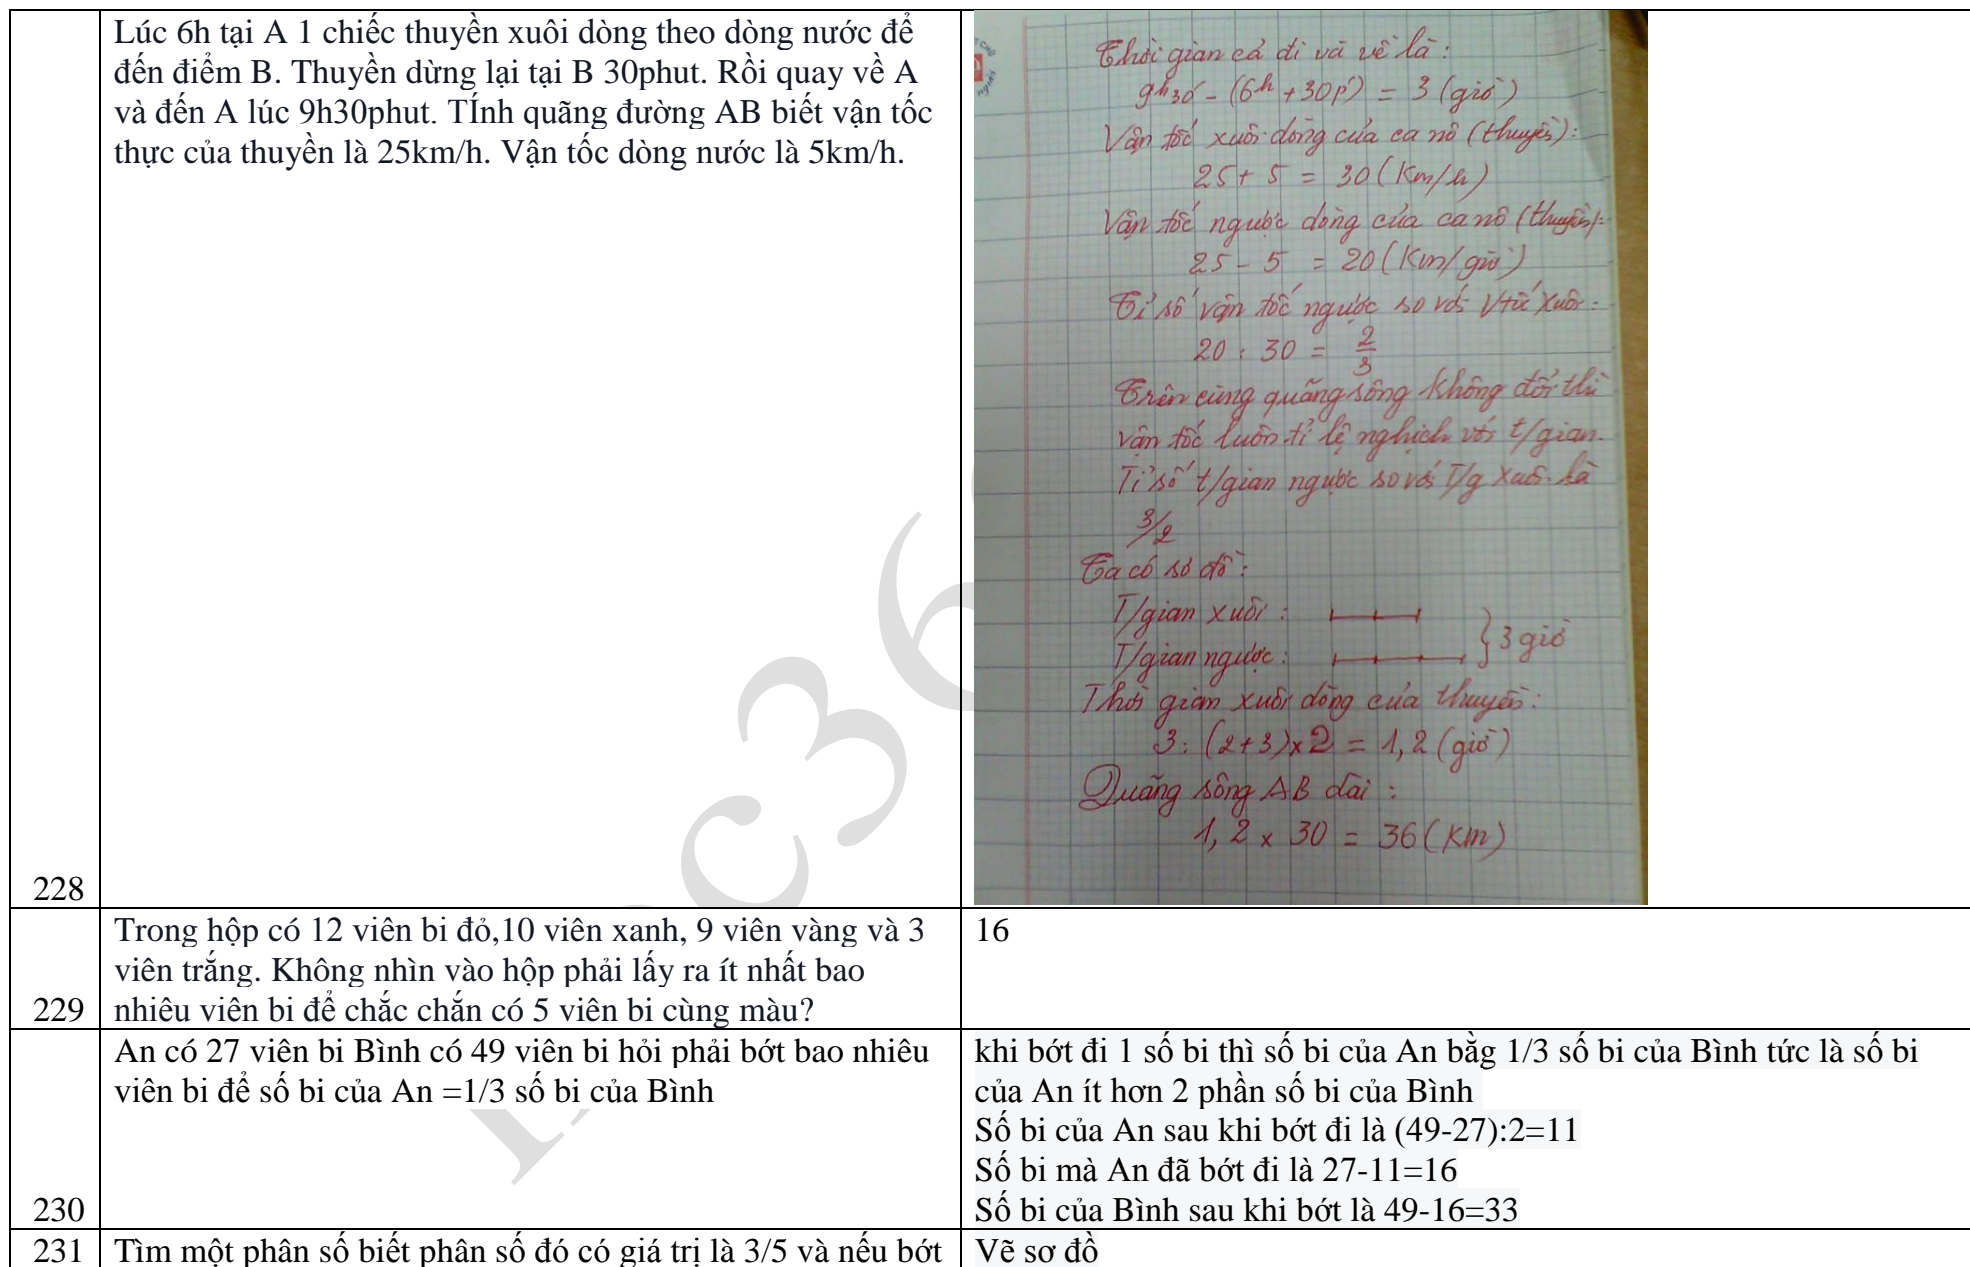 Lúc 6h tại A 1 chiếc thuyền xuôi dòng theo dòng nước để
đến điểm B. Thuyền dừng lại tại B 30phut. Rồi quay về A
và đến A lúc 9h30phut. TÍnh quãng đường AB biết vận tốc
thực của thuyền là 25km/h. Vận tốc dòng nước là 5km/h.
228
Thời gian cả đi và về là:
9h30' - (6h + 30p') = 3 (giờ)
Vận tốc xuôi dòng của ca nô (thuyền):
25 + 5 = 30 (Km/h)
Vận tốc ngược dòng của ca nô (thuyền):
25 - 5 = 20 (Km/giờ)
Tỉ số vận tốc ngược so với Vtốc xuôi:
20 : 30 = 2/3
Trên cùng quãng sông không đổi thì
vận tốc luôn tỉ lệ nghịch với t/gian.
Tỉ số t/gian ngược so với T/g xuôi là
3/2
Ta có sơ đồ:
T/gian xuôi :
T/gian ngược :
3 giờ
Thời gian xuôi dòng của thuyền:
3 : (2+3) x 2 = 1,2 (giờ)
Quãng sông AB dài :
1,2 x 30 = 36 (Km)
Trong hộp có 12 viên bi đỏ,10 viên xanh, 9 viên vàng và 3
viên trắng. Không nhìn vào hộp phải lấy ra ít nhất bao
229 nhiêu viên bi để chắc chắn có 5 viên bi cùng màu?
16
An có 27 viên bi Bình có 49 viên bi hỏi phải bớt bao nhiêu
viên bi để số bi của An =1/3 số bi của Bình
230
khi bớt đi 1 số bi thì số bi của An bằg 1/3 số bi của Bình tức là số bi
của An ít hơn 2 phần số bi của Bình
Số bi của An sau khi bớt đi là (49-27):2=11
Số bi mà An đã bớt đi là 27-11=16
Số bi của Bình sau khi bớt là 49-16=33
231 Tìm một phân số biết phân số đó có giá trị là 3/5 và nếu bớt
Vẽ sơ đồ